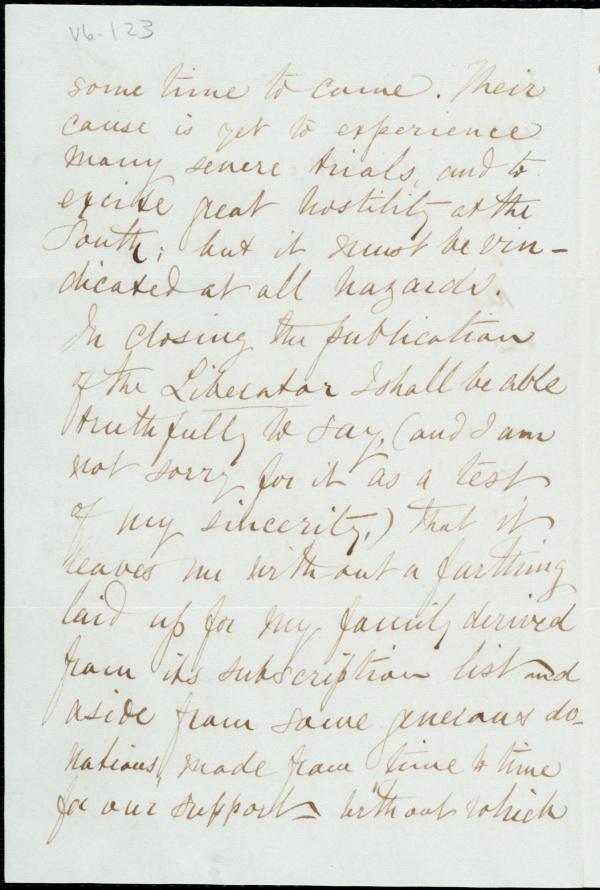 V6.123
some time to come. Their
cause is yet to experience
many severe trials, and to
excite great hostility at the
South; but it must be vin-
dicated at all hazards.
In closing the publication
of the Liberator I shall be able
truthfully to say, (and I am
not sorry for it as a test
of my sincerity,) that it
leaves me without a farthing
laid up for my family derived
from its subscription list and
aside from some generous do-
nations, made from time to time
for our support – without which